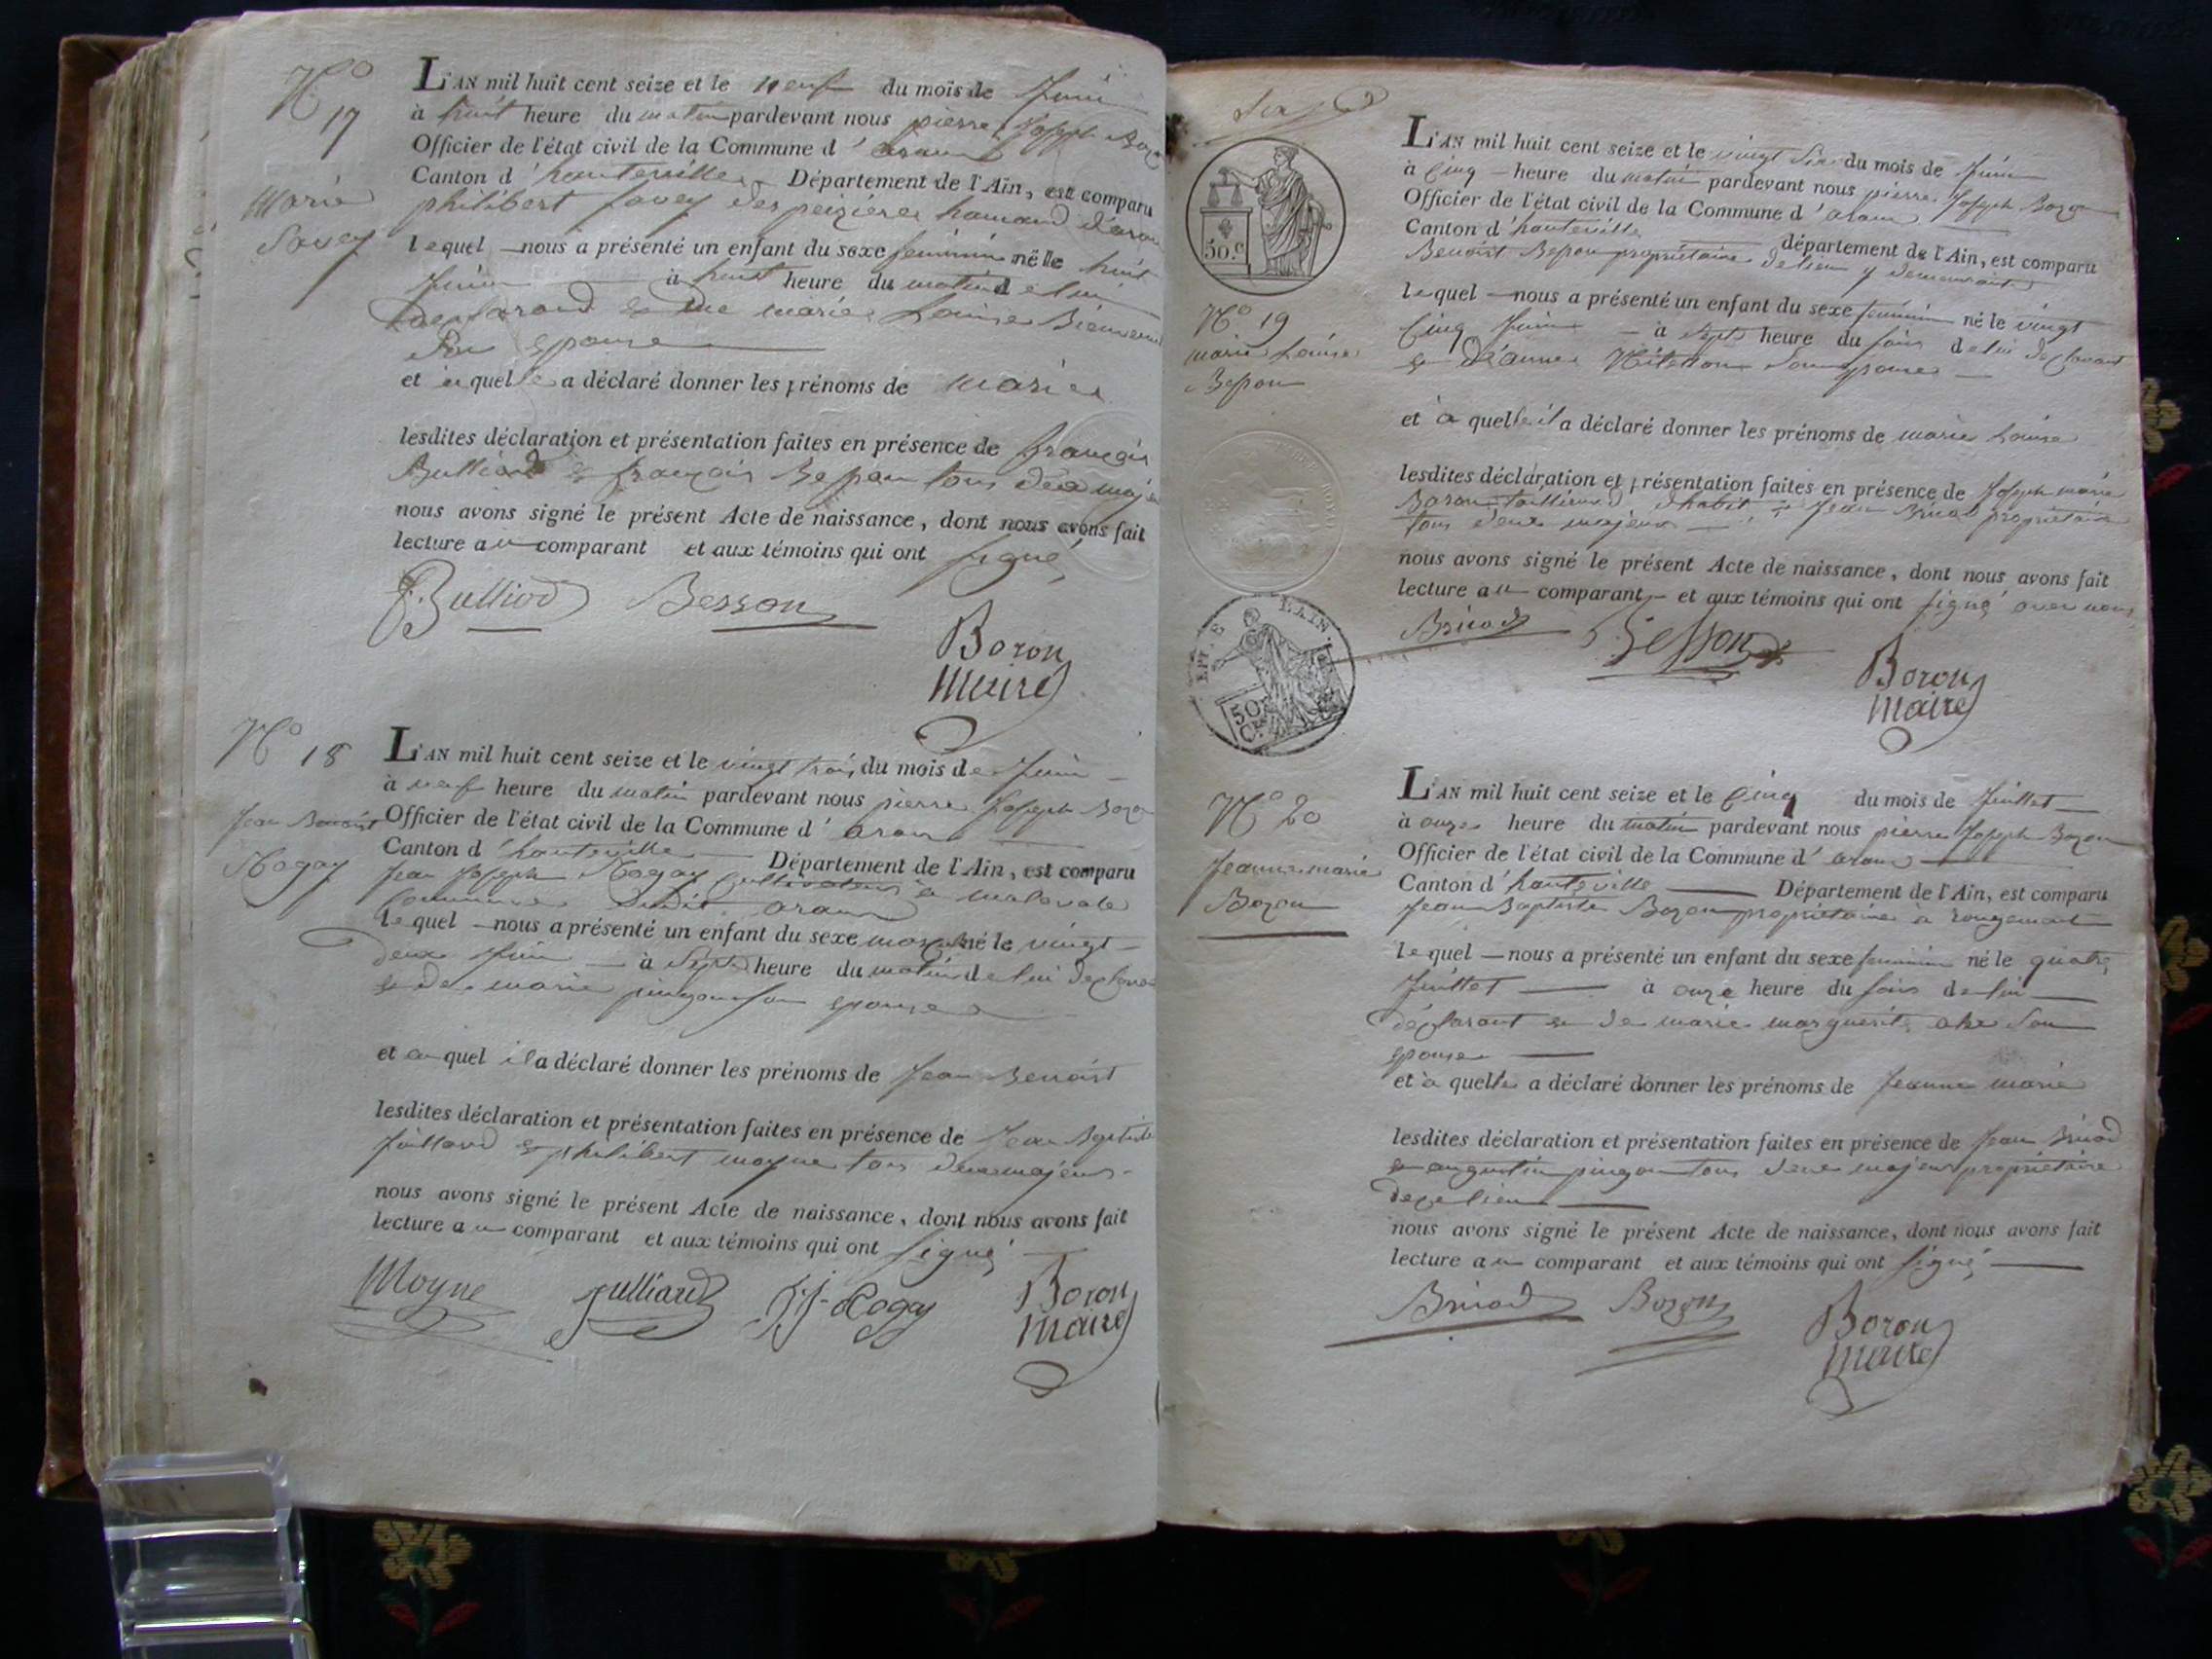 N.o 17
Marie
Savey
L'AN mil huit cent seize et le neuf du mois de Juin
à huit heure du matin pardevant nous pierre Joseph Bozon
Officier de l'état civil de la Commune d'aranc
Canton d'hauteville Département de l'Ain, est comparu
philibert Savey des peizieres hamaud d'aranc
lequel nous a présenté un enfant du sexe feminin né le huit
Juin à huit heure du matin de lui
declarand et de marie Louise
Son epouse
et a quelle a déclaré donner les prénoms de marie
lesdites déclaration et présentation faites en présence de françois
Bulliod et françois Besson tous deux maj
nous avons signé le présent Acte de naissance, dont nous avons fait
lecture au comparant et aux témoins qui ont signé
Bulliod Besson
Bozon
Maire
N.o 18
Jean Benoist
Rogay
L'AN mil huit cent seize et le vingt trois du mois de Juin
à neuf heure du matin pardevant nous pierre Joseph Bozon
Officier de l'état civil de la Commune d'aranc
Canton d'hauteville Département de l'Ain, est comparu
Jean Joseph Rogay Cultivateur à malavale
Commune dudit aranc
lequel nous a présenté un enfant du sexe masculin né le vingt
deux Juin à Sept heure du matin de lui declarant
et de marie pinzon son epouse
et au quel il a déclaré donner les prénoms de Jean Benoist
lesdites déclaration et présentation faites en présence de Jean Baptiste
Juillard et philibert moyne tous deux majeurs
nous avons signé le présent Acte de naissance, dont nous avons fait
lecture au comparant et aux témoins qui ont signé
Moyne Julliard J. J. Rogay Bozon
Maire
50 c.
N.o 19
marie Louise
Besson
L'AN mil huit cent seize et le vingt Six du mois de Juin
à Cinq heure du matin pardevant nous pierre Joseph Bozon
Officier de l'état civil de la Commune d'aranc
Canton d'hauteville département de l'Ain, est comparu
Benoist Besson propriétaire de lieu y demeurant
lequel nous a présenté un enfant du sexe feminin né le vingt
Cinq Juin à Sept heure du soir de lui declarant
et de anne Son epouse
et à quelle il a déclaré donner les prénoms de marie Louise
lesdites déclaration et présentation faites en présence de Joseph marie
Bozon tailleur d'habit et Jean Briod propriétaire
tous deux majeurs
nous avons signé le présent Acte de naissance, dont nous avons fait
lecture au comparant et aux témoins qui ont signé avec nous
DEPT. DE L'AIN.
50 C.es
Briod Besson
Bozon
Maire
N.o 20
Jeanne marie
Bozon
L'AN mil huit cent seize et le Cinq du mois de Juillet
à onze heure du matin pardevant nous pierre Joseph Bozon
Officier de l'état civil de la Commune d'aranc
Canton d'hauteville Département de l'Ain, est comparu
Jean Baptiste Bozon propriétaire à rougemont
lequel nous a présenté un enfant du sexe feminin né le quatre
Juillet à onze heure du soir de lui
déclarant et de marie marguerite Son
epouse
et à quelle a déclaré donner les prénoms de Jeanne marie
lesdites déclaration et présentation faites en présence de Jean Briod
et augustin pinzon tous deux majeurs propriétaire
de ce lieu
nous avons signé le présent Acte de naissance, dont nous avons fait
lecture au comparant et aux témoins qui ont signé
Briod Bozon Bozon
Maire